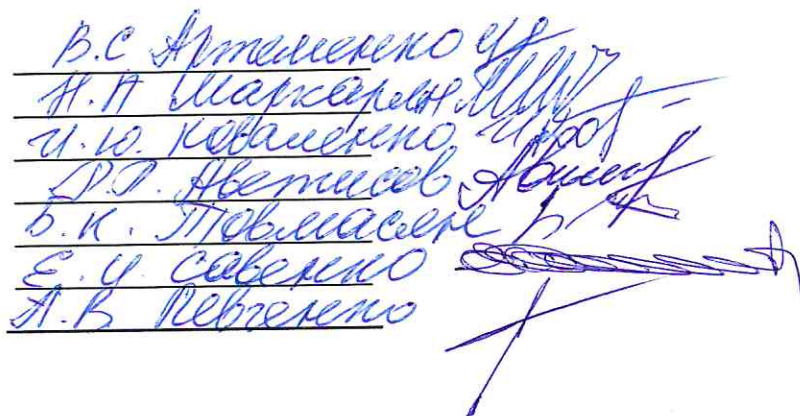 В.С Артеменко
Н.А Маркарян
И.Ю. Коваленко
Р.Р. Аветисов
Б.К. Товмасян
Е.И. Савенко
А.В Левченко